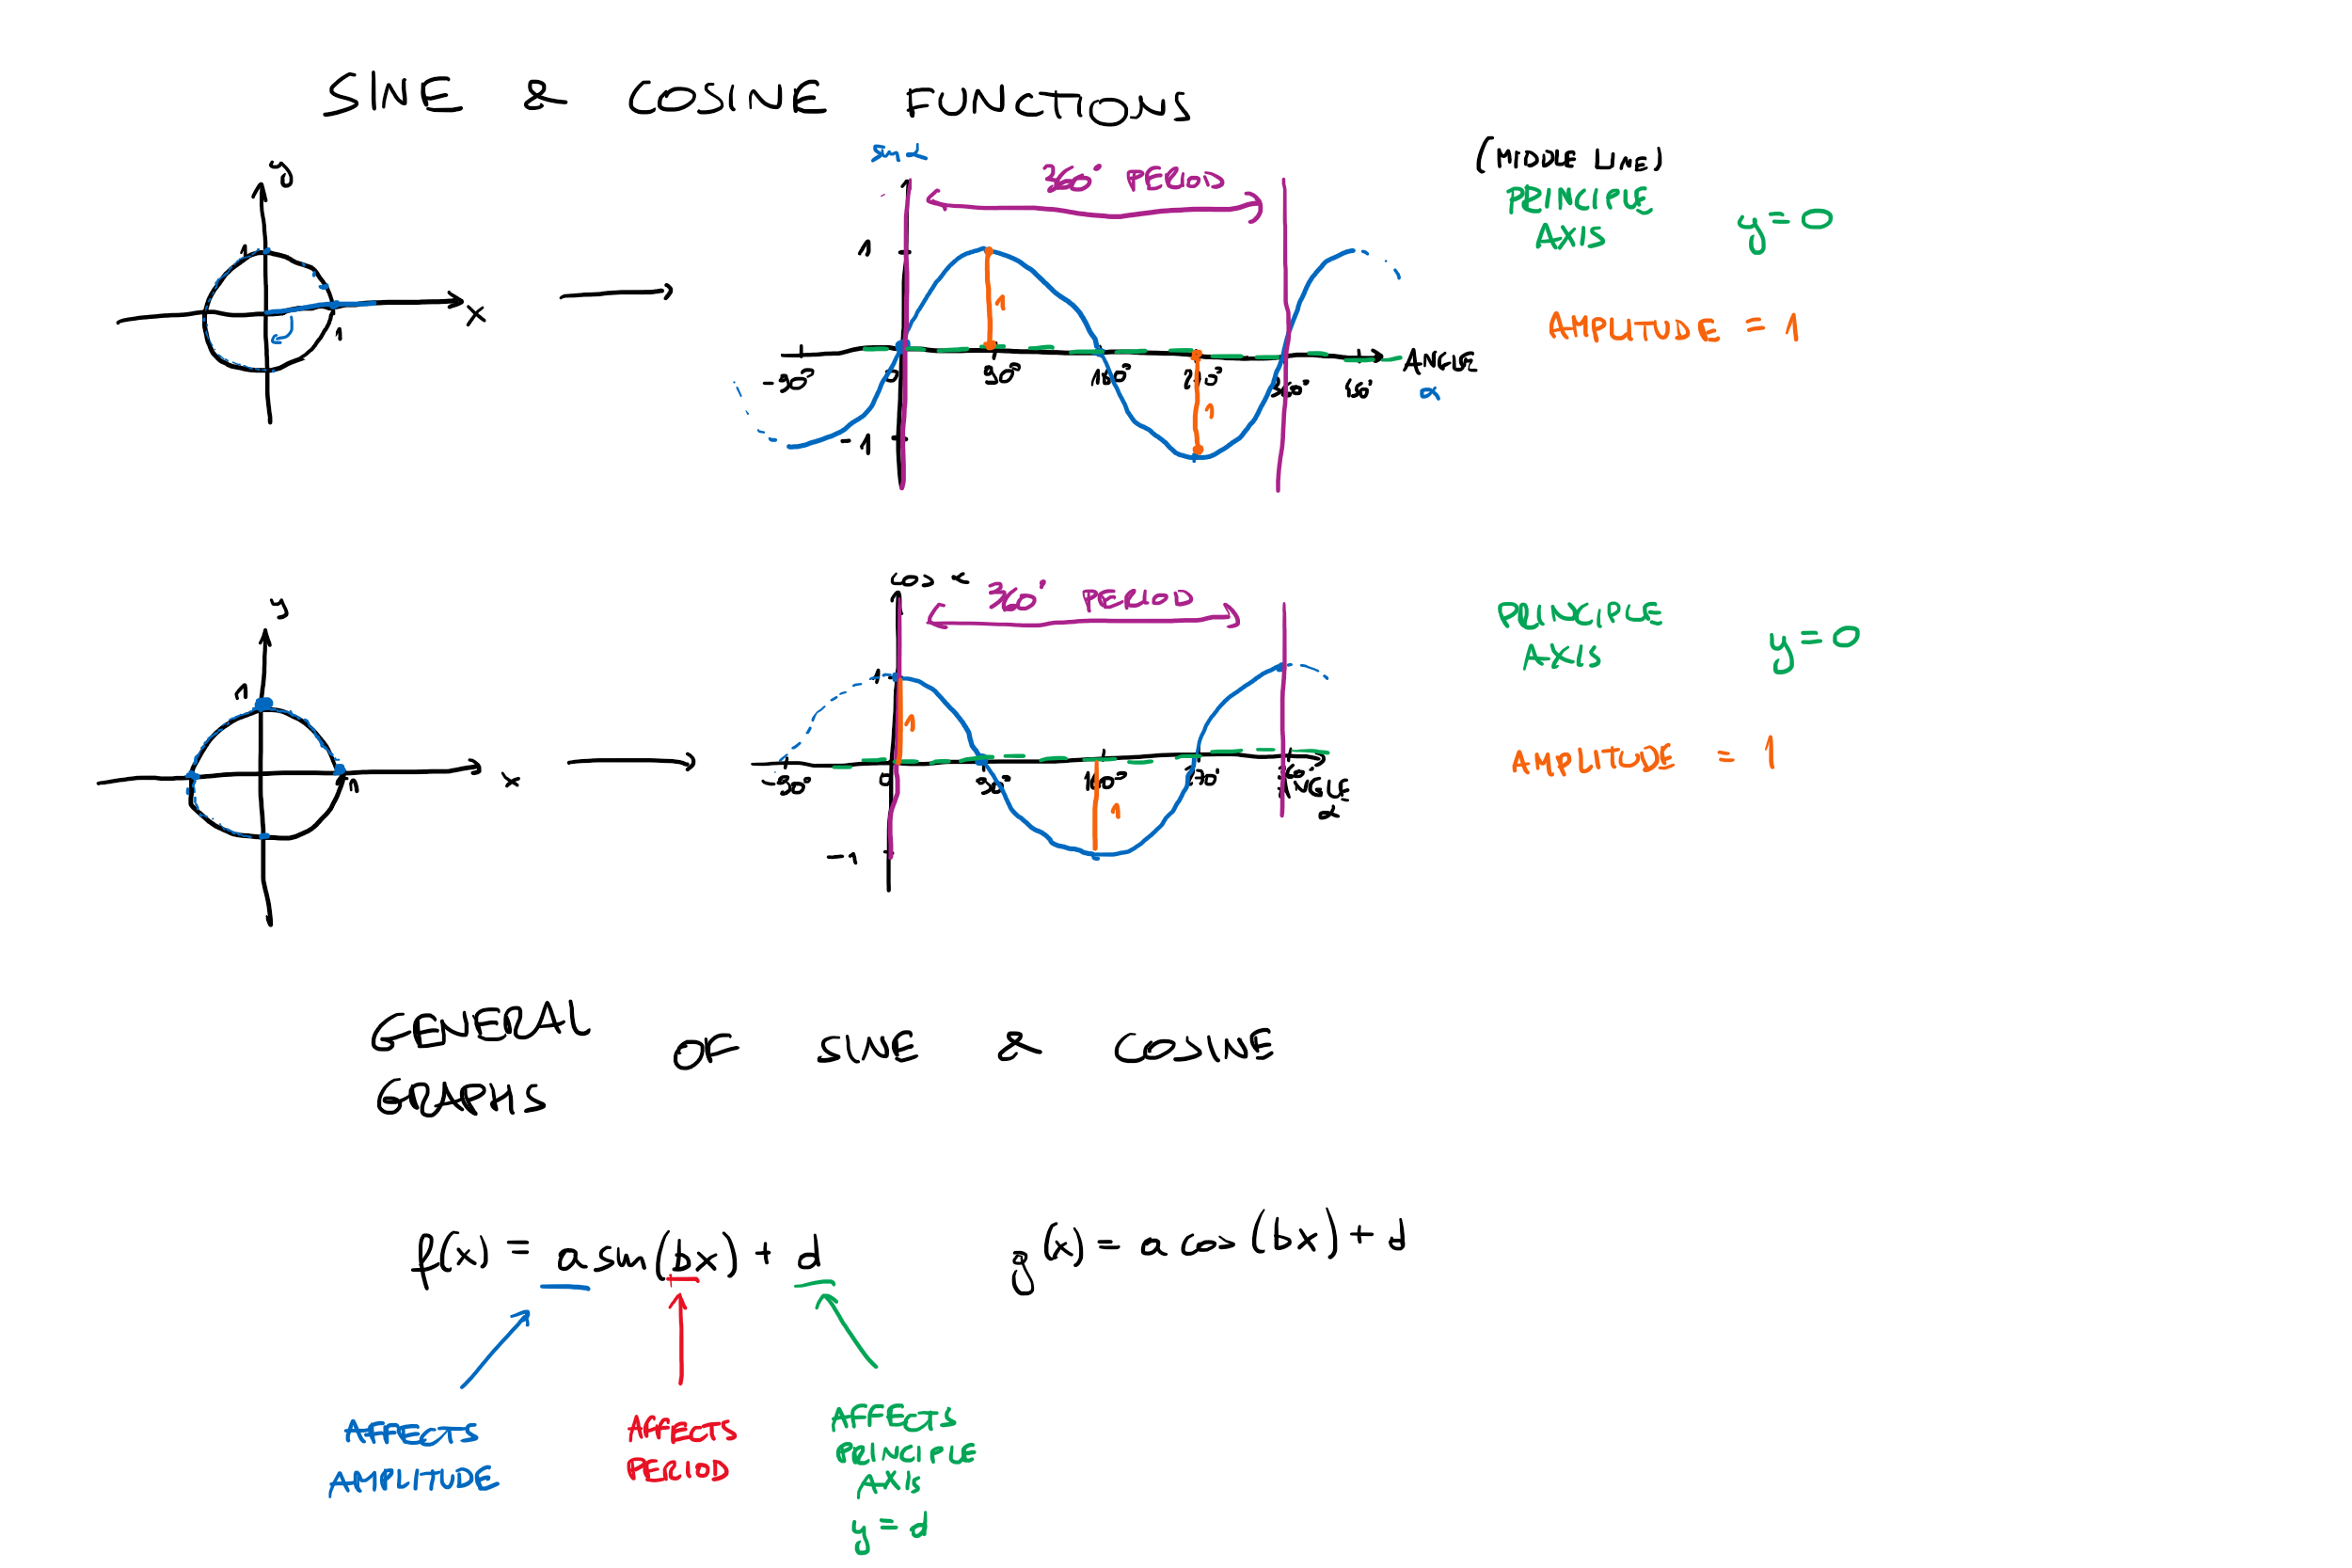 SINE & COSINE FUNCTIONS
y
1
1
x
sin α
360° PERIOD
1
1
-90°
0
90°
180°
270°
360°
450°
ANGLE
α
1
-1
(MIDDLE LINE)
PRINCIPLE
AXIS
y=0
AMPLITUDE = 1
y
1
1
x
cos α
360° PERIOD
1
1
-90°
0
90°
180°
270°
360°
ANGLE
α
1
-1
PRINCIPLE
AXIS
y=0
AMPLITUDE = 1
GENERAL
GRAPHS
OF SINE & COSINE
f(x) = a sin(bx) + d
g(x) = a cos(bx) + d
AFFECTS
AMPLITUDE
AFFECTS
PERIOD
AFFECTS
PRINCIPLE
AXIS
y = d